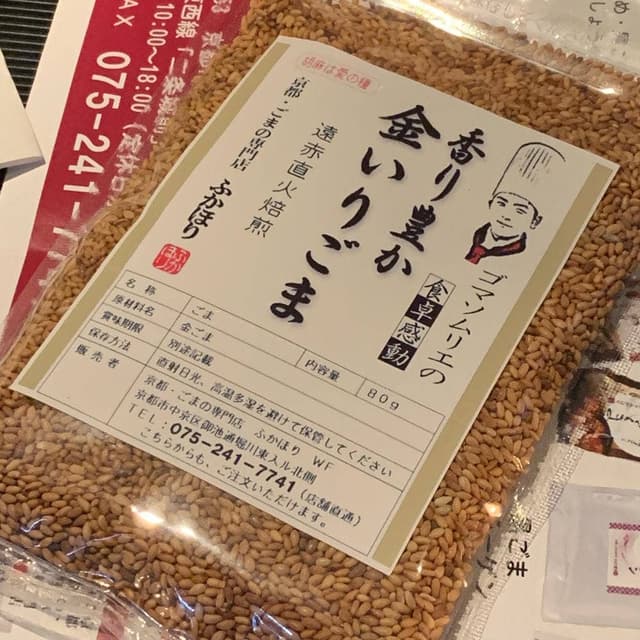 胡麻は愛の種
ゴマソムリエの
食卓感動
香り豊か
金いりごま
遠赤直火焙煎
京都・ごまの専門店
ふかほり
名称 ごま 内容量 80g
原材料名 金ごま
賞味期限 別途記載
保存方法 直射日光、高温多湿を避けて保管してください
販売者 京都・ごまの専門店 ふかほり WF
京都市中京区御池通堀川東入ル北側
TEL:075-241-7741(店舗直通)
こちらからも、ご注文いただけます。
西線「二条城
10:00〜18:00
AX 075-241-